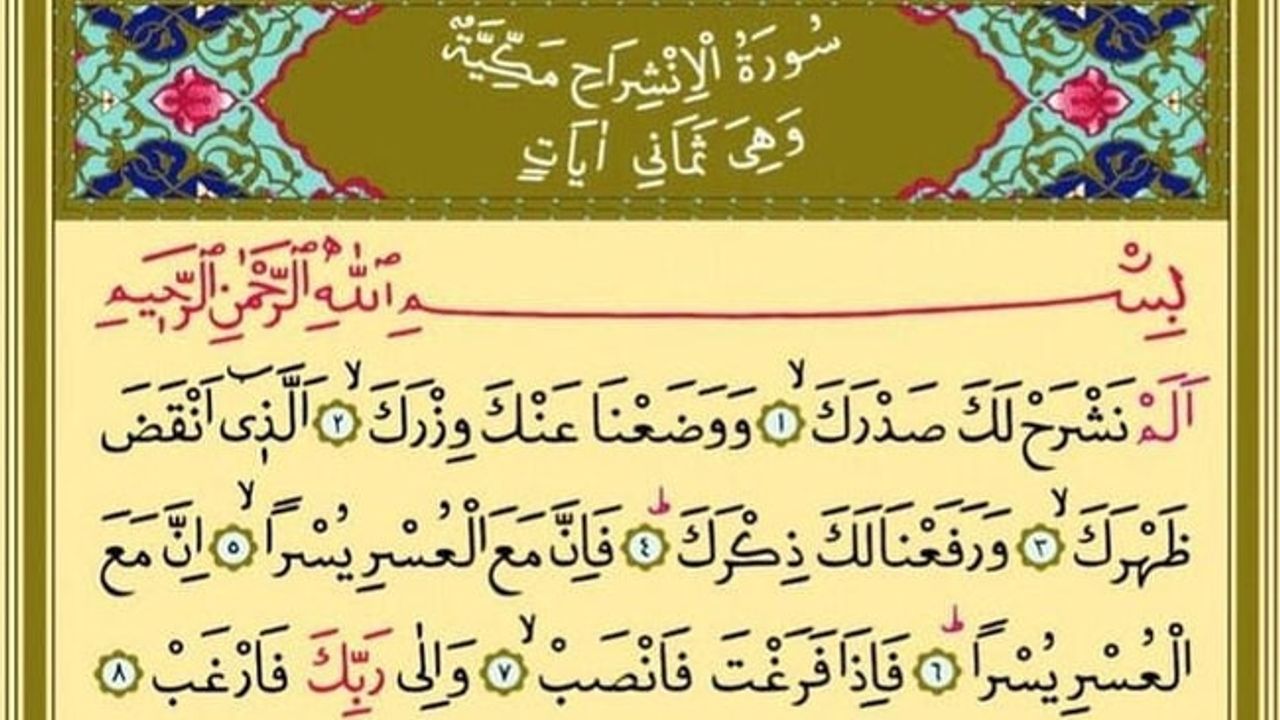 سُورَةُ الْاِنْشِرَاحِ مَكِّيَّةٌ
وَهِىَ ثَمَانِي اٰيَاتٍ
بِسْمِ اللّٰهِ الرَّحْمٰنِ الرَّحِيمِ
اَلَمْ نَشْرَحْ لَكَ صَدْرَكَۙ ﴿١﴾ وَوَضَعْنَا عَنْكَ وِزْرَكَۙ ﴿٢﴾ اَلَّذ۪ٓى اَنْقَضَ
ظَهْرَكَۙ ﴿٣﴾ وَرَفَعْنَا لَكَ ذِكْرَكَۜ ﴿٤﴾ فَاِنَّ مَعَ الْعُسْرِ يُسْرًاۙ ﴿٥﴾ اِنَّ مَعَ
الْعُسْرِ يُسْرًاۜ ﴿٦﴾ فَاِذَا فَرَغْتَ فَانْصَبْۙ ﴿٧﴾ وَاِلٰى رَبِّكَ فَارْغَبْ ﴿٨﴾